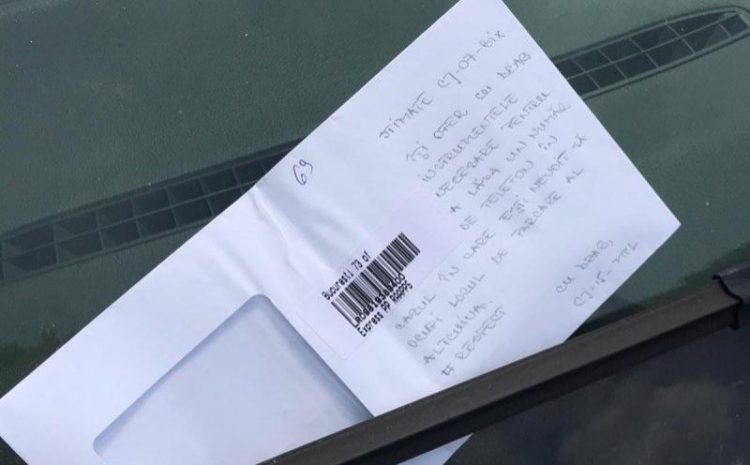 STIMATE CJ-07-BIX
ÎȚI OFER CU DRAG
INSTRUMENTELE
NECESARE PENTRU
A LĂSA UN NUMĂR
DE TELEFON ÎN
CAZUL ÎN CARE EȘTI NEVOIT SĂ
OCUPI LOCUL DE PARCARE AL
ALTCUIVA.
# RESPECT
CU DRAG,
CJ-15-
69
Bucuresti 73 of
Express PP